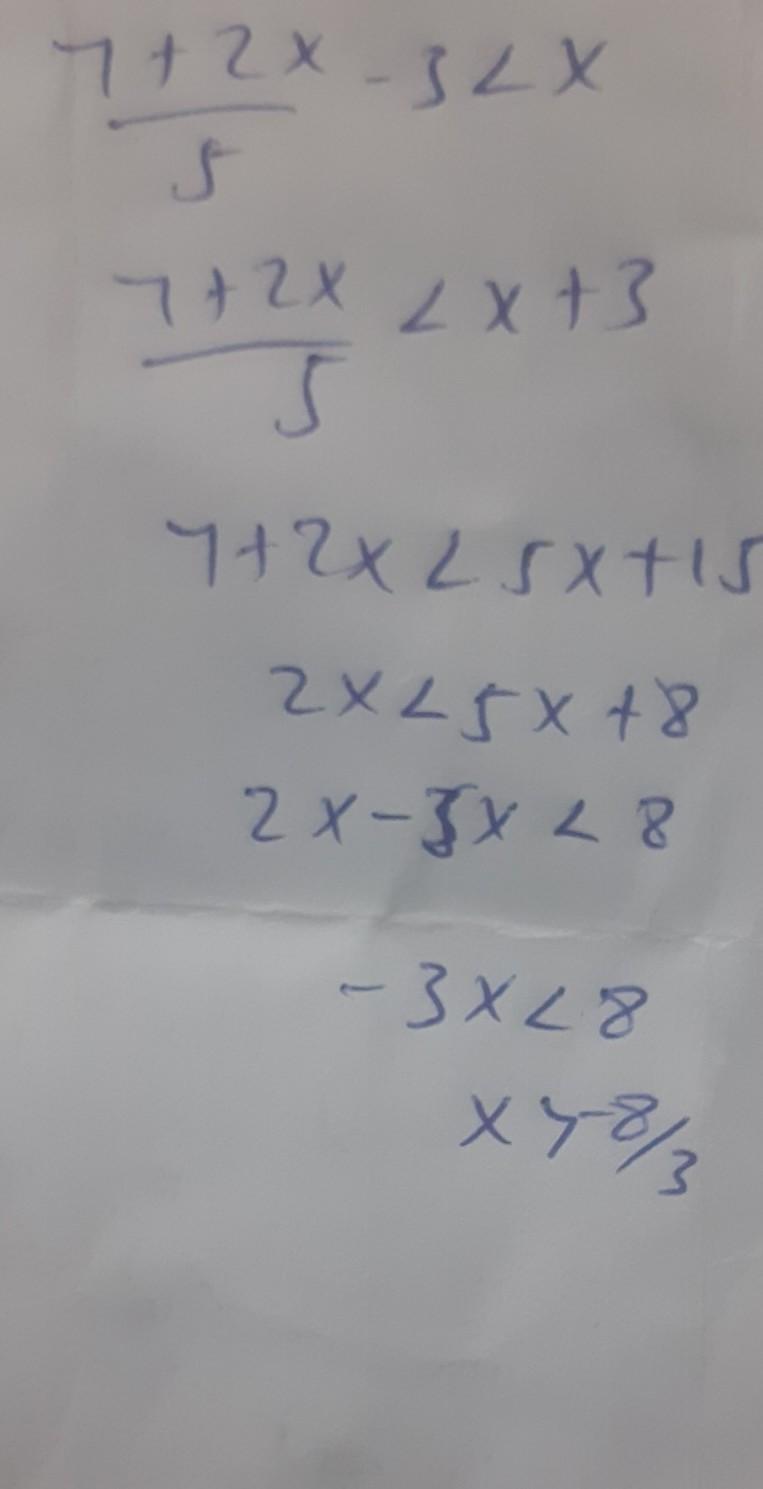 7+2x/5 -3<x
7+2x/5 < x+3
7+2x<5x+15
2x<5x+8
2x-5x<8
-3x<8
x>-8/3